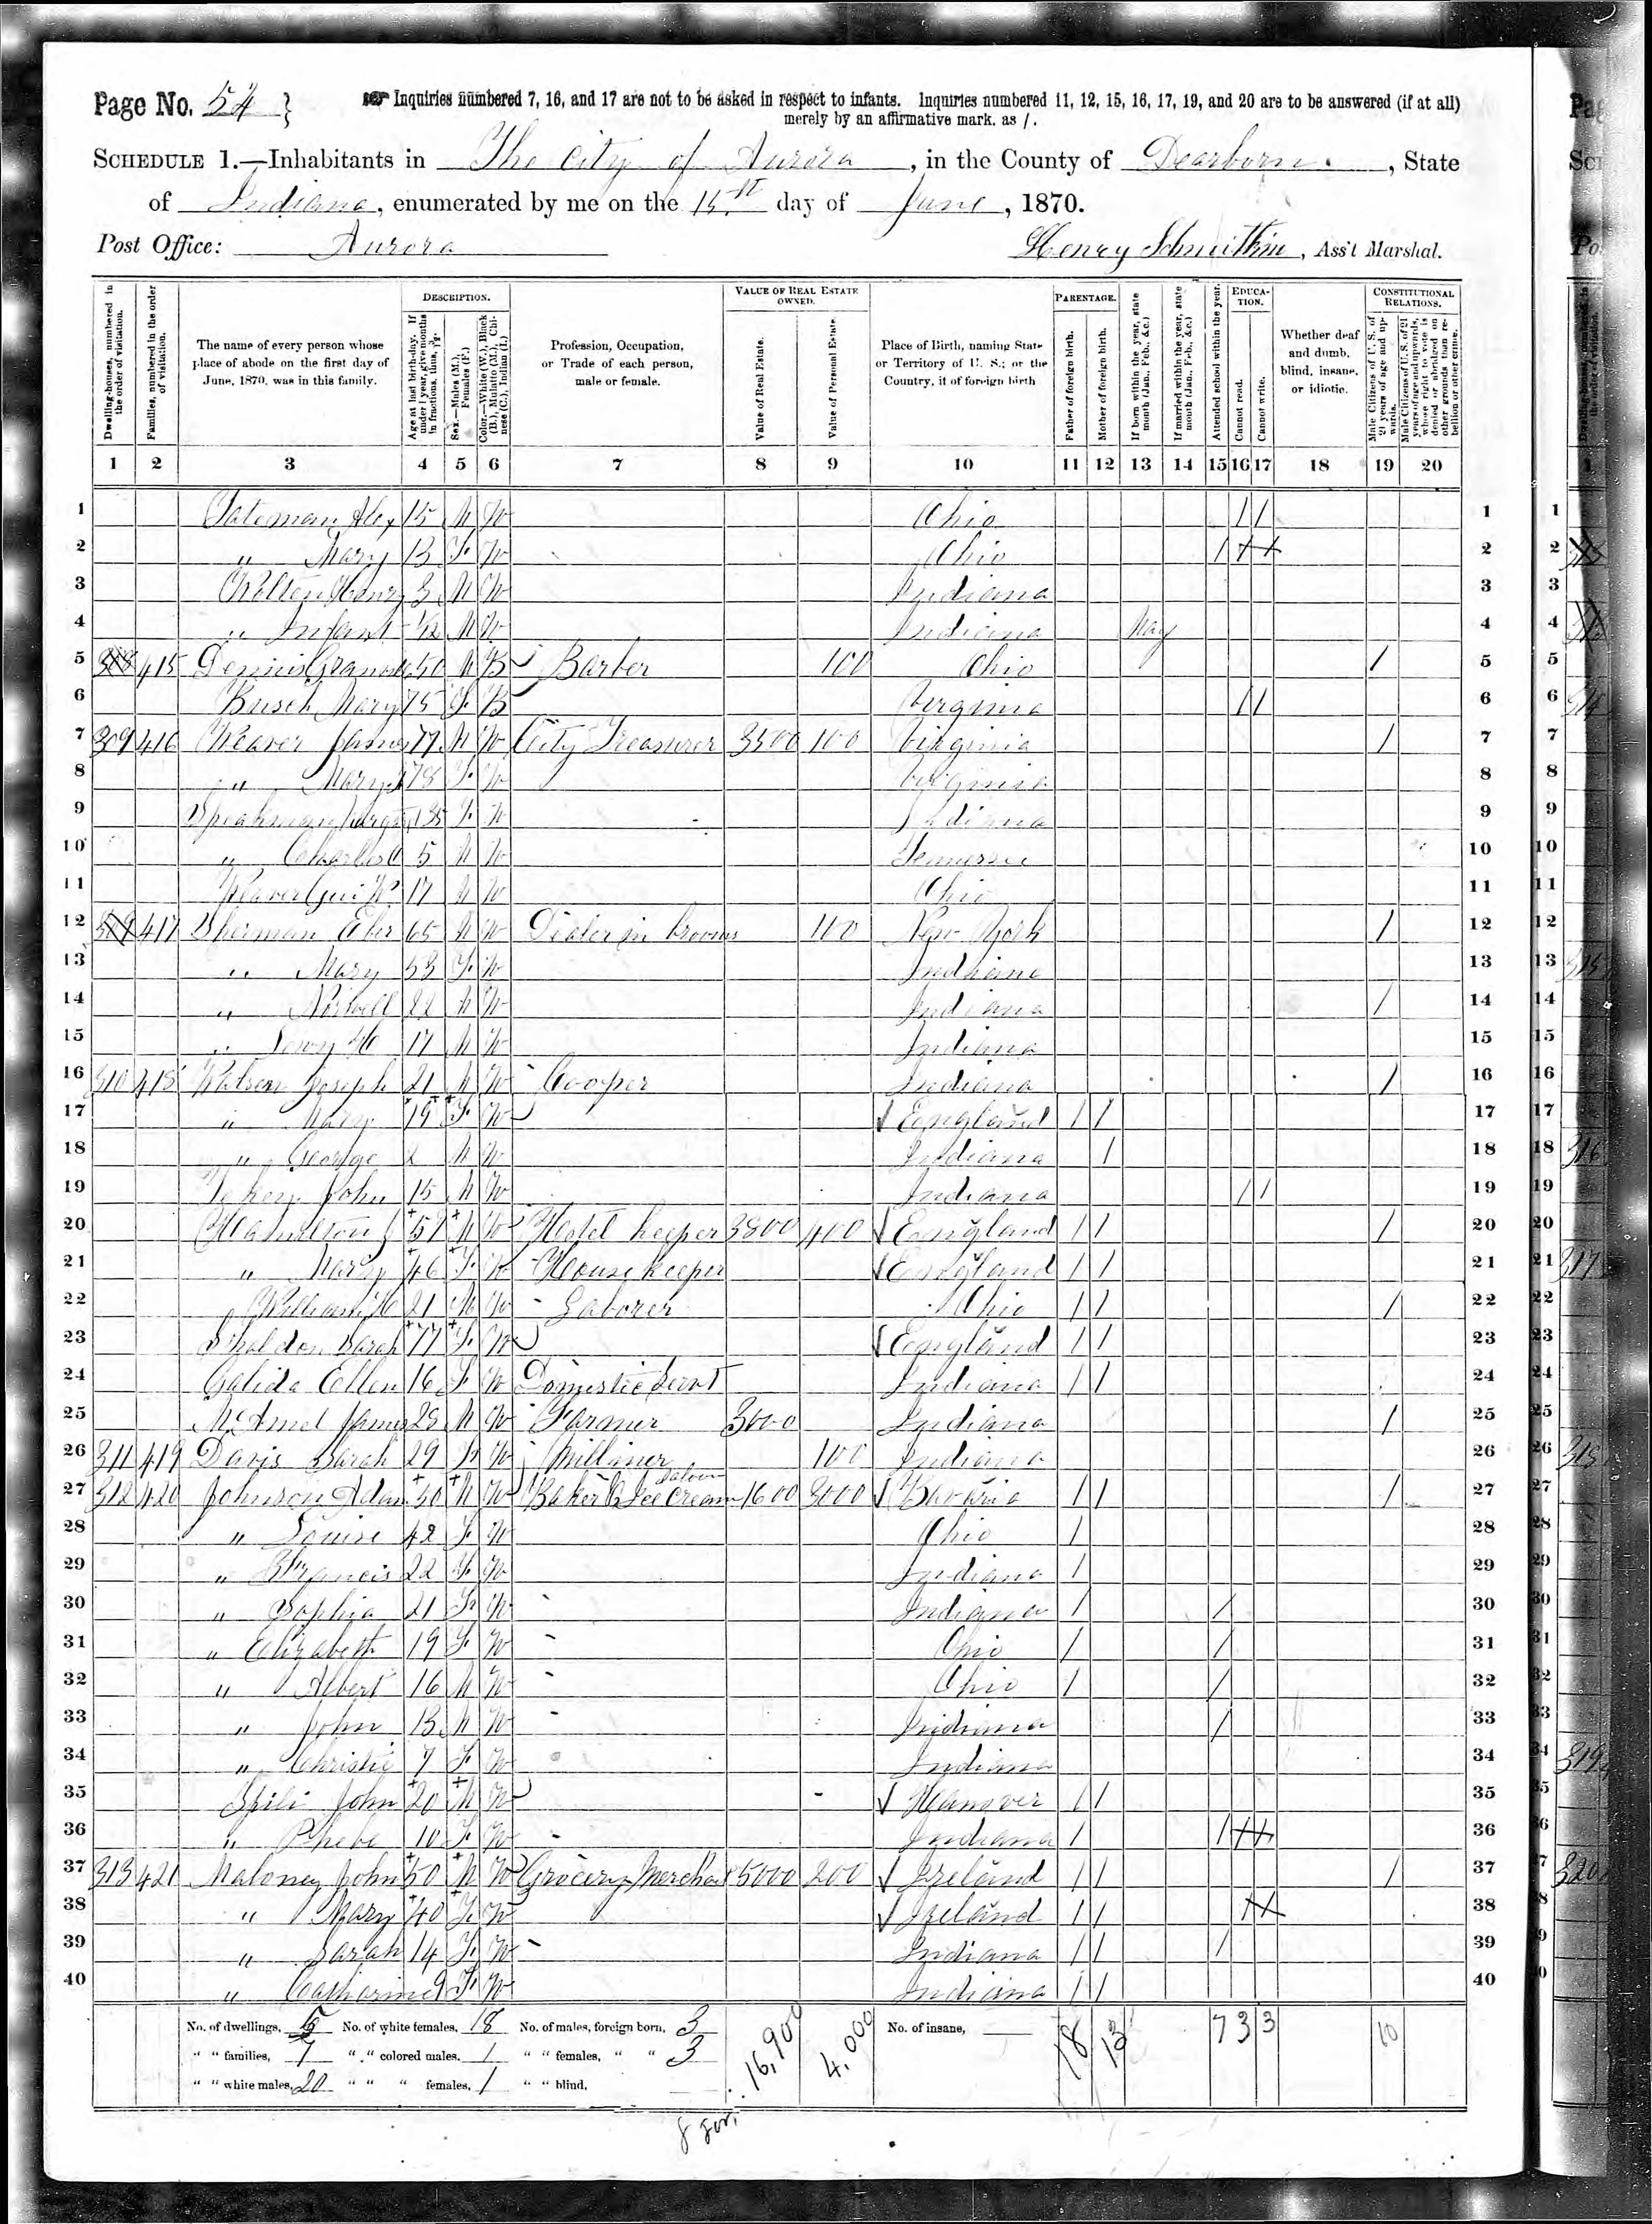 Page No. 54 }
Inquiries numbered 7, 16, and 17 are not to be asked in respect to infants. Inquiries numbered 11, 12, 15, 16, 17, 19, and 20 are to be answered (if at all)
merely by an affirmative mark, as /.
SCHEDULE 1.—Inhabitants in The City of Aurora, in the County of Dearborn, State
of Indiana, enumerated by me on the 15st day of June, 1870.
Post Office: Aurora
Henry, Ass't Marshal.
Dwelling-houses, numbered in the order of visitation.
Families, numbered in the order of visitation.
The name of every person whose place of abode on the first day of June, 1870, was in this family.
DESCRIPTION.
Age at last birth-day. If under 1 year, give months in fractions, thus, 3/12.
Sex.—Males (M.), Females (F.)
Color.—White (W.), Black (B.), Mulatto (M.), Chinese (C.), Indian (I.)
Profession, Occupation, or Trade of each person, male or female.
VALUE OF REAL ESTATE OWNED.
Value of Real Estate.
Value of Personal Estate.
Place of Birth, naming State or Territory of U. S.; or the Country, if of foreign birth
PARENTAGE.
Father of foreign birth.
Mother of foreign birth.
If born within the year, state month (Jan., Feb., &c.)
If married within the year, state month (Jan., Feb., &c.)
Attended school within the year.
EDUCATION.
Cannot read.
Cannot write.
Whether deaf and dumb, blind, insane, or idiotic.
CONSTITUTIONAL RELATIONS.
Male Citizens of U. S. of 21 years of age and upwards.
Male Citizens of U. S. of 21 years of age and upwards, whose right to vote is denied or abridged on other grounds than rebellion or other crime.
1 2 3 4 5 6 7 8 9 10 11 12 13 14 15 16 17 18 19 20
1 Alex 15 M W Ohio / / 1
2 " Mary 13 F W Ohio / 2
3 Henry 3 M W Indiana 3
4 " Infant 1/12 M W Indiana May 4
5 415 Dennis 50 M B Barber 100 Ohio / 5
6 Busch Mary 75 F B Virginia / / 6
7 309 416 Weaver James 77 M W City Treasurer 3500 100 Virginia / 7
8 " Mary 78 F W Virginia 8
9 Speakman 35 F W Indiana 9
10 " Charles 5 M W Tennessee 10
11 Weaver 17 M W Ohio 11
12 417 Sherman Eber 65 M W Dealer in brooms 100 New York / 12
13 " Mary 53 F W Indiana 13
14 " Norwell 22 M W Indiana / 14
15 " 17 M W Indiana 15
16 310 418 Watson Joseph 21 M W Cooper Indiana / 16
17 " Mary 19 F W England / / 17
18 " George 2 M W Indiana / 18
19 John 15 M W Indiana / / 19
20 Hamilton J 57 M W Hotel keeper 3800 400 England / / / 20
21 " Mary 46 F W House keeper England / / 21
22 " William H 21 M W Laborer Ohio / / / 22
23 Shaldon Sarah 77 F W England / / 23
24 Galida Ellen 16 F W Domestic Servt Indiana / / 24
25 James 28 M W Farmer 3000 Indiana / 25
26 311 419 Davis Sarah 29 F W Milliner 100 Indiana 26
27 312 420 Johnson Adam 50 M W Baker & Ice Cream Saloon 1600 3000 Bavaria / / / 27
28 " Louise 42 F W Ohio / 28
29 " Francis 22 F W Indiana / 29
30 " Sophia 21 F W Indiana / / 30
31 " Elizabeth 19 F W Ohio / / 31
32 " Albert 16 M W Ohio / / 32
33 " John 13 M W Indiana / 33
34 " Christie 7 F W Indiana 34
35 Spili John 20 M W Hanover / / 35
36 " Phebe 10 F W Indiana / / 36
37 313 421 Maloney John 50 M W Grocery Merchant 5000 200 Ireland / / / 37
38 " Mary 40 F W Ireland / / 38
39 " Sarah 14 F W Indiana / / / 39
40 " Catharine 9 F W Indiana / / 40
No. of dwellings, 5 No. of white females, 18 No. of males, foreign born, 3 16,900 4,000 No. of insane, 18 13 7 3 3 10
" " families, 7 " " colored males, 1 " " females, " " 3
" " white males, 20 " " " females, 1 " " blind,
8 for.